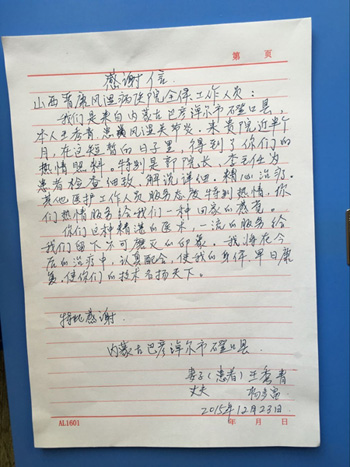 第 页
感谢信
山西晋康风湿病医院全体工作人员:
我们是来自内蒙古巴彦淖尔市磴口县,
本人王秀青,患痛风湿关节炎,来贵院近半个
月,在这短暂的日子里,得到了你们的
热情照料。特别是郭院长、李主任为
患者检查细致,解说详细,精心治疗。
其他医护工作人员服务态度特别热情,你
们热情服务给我们一种回家的感觉。
你们这种精湛的医术,一流的服务给
我们留下不可磨灭的印象。我将在今
后的治疗中,认真配合,使我的身体早日康
复,使你们的技术名扬天下。
特此感谢.
内蒙古巴彦淖尔市磴口县.
妻子(患者)王秀青
丈夫 杨
2015年12月23日.
AL1601 年 月 日